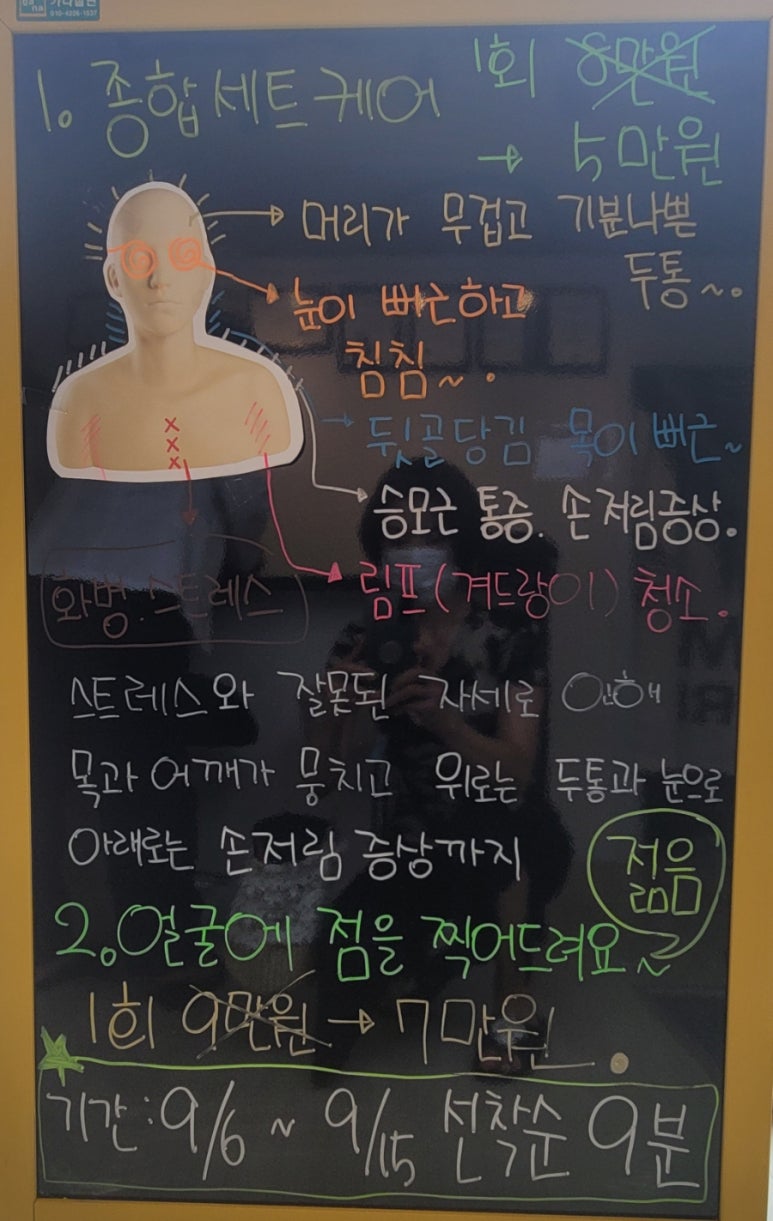 가나칠판
010-4226-1537
1. 종합세트케어 1회 8만원
→ 5만원
머리가 무겁고 기분나쁜
두통~.
눈이 뻐근하고
침침~.
뒷골당김 목이뻐근~
승모근 통증. 손저림증상.
화병.스트레스
림프(겨드랑이) 청소.
스트레스와 잘못된 자세로 인해
목과 어깨가 뭉치고 위로는 두통과 눈으로
아래로는 손저림 증상까지
젊음
2.얼굴에 점을 찍어드려요~
1회 9만원 → 7만원.
기간:9/6 ~ 9/15 선착순 9분